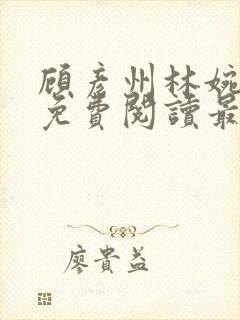 顧彥州林婉
免費閱讀最
廖貴益